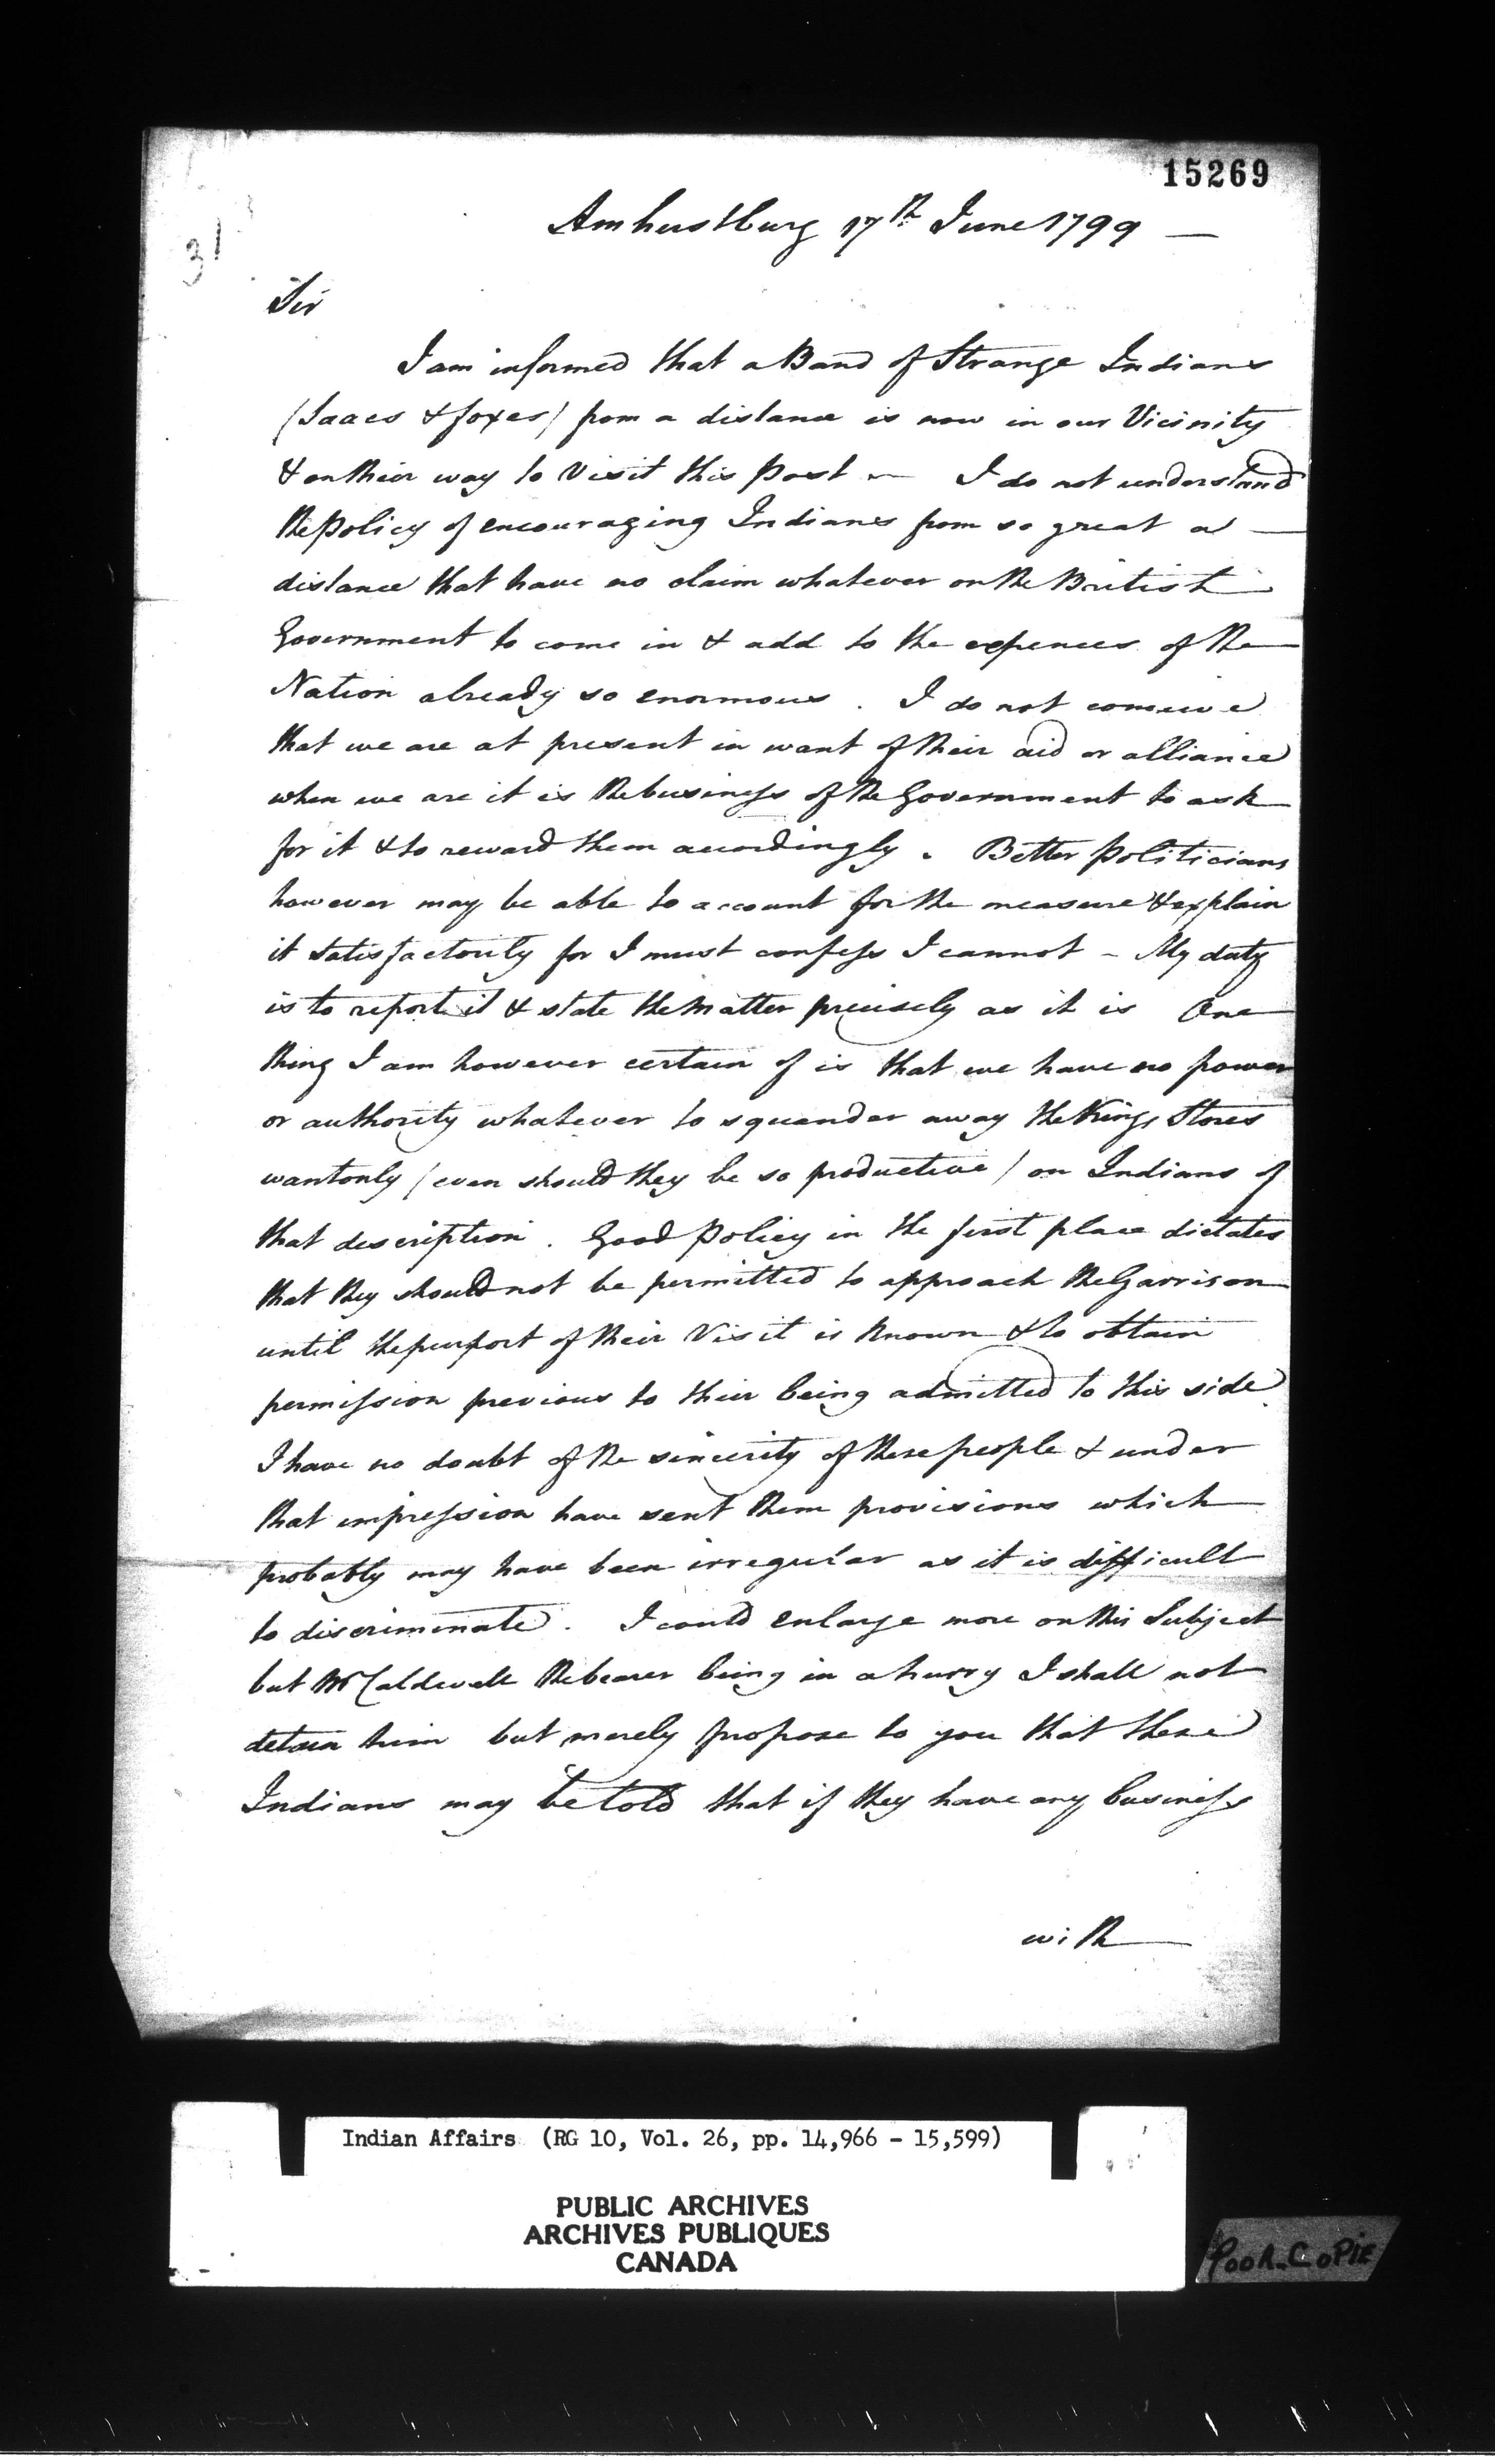 15269
31
Amherstburg 17th June 1799 —
Sir
I am informed that a Band of Strange Indians
(Saacs & foxes) from a distance is now in our Vicinity
& on their way to Visit this Post — I do not understand
the policy of encouraging Indians from so great a —
distance that have no claim whatever on the British
Government to come in & add to the expences of the
Nation already so enormous . I do not conceive
that we are at present in want of their aid or alliance
when we are it is the business of the Government to ask
for it & to reward them accordingly . Better politicians
however may be able to account for the measure & explain
it satisfactorily for I must confess I cannot – My duty
is to report it & state the matter precisely as it is One
thing I am however certain of is that we have no power
or authority whatever to squander away the Kings Stores
wantonly (even should they be so productive) on Indians of
that description . Good policy in the first place dictates
that they should not be permitted to approach the Garrison
until the purport of their Visit is known & to obtain
permission previous to their being admitted to this side
I have no doubt of the sincerity of these people & under
that impression have sent them provisions which
probably may have been irregular as it is difficult
to discriminate . I could enlarge more on this Subject
but Mr Caldwell the bearer being in a hurry I shall not
detain him but merely propose to you that these
Indians may be told that if they have any business
with
Indian Affairs (RG 10, Vol. 26, pp. 14,966 - 15,599)
PUBLIC ARCHIVES
ARCHIVES PUBLIQUES
CANADA
POOR COPIE